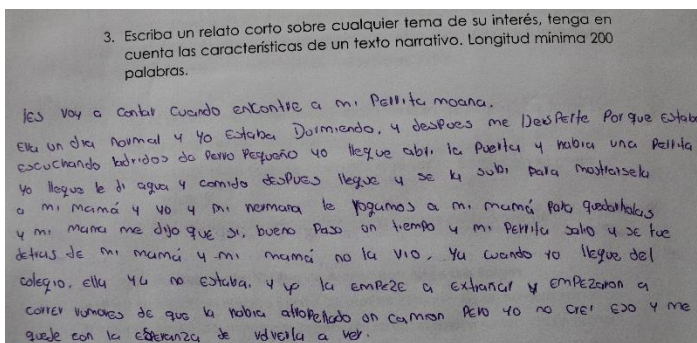 3. Escriba un relato corto sobre cualquier tema de su interés, tenga en
cuenta las características de un texto narrativo. Longitud mínima 200
palabras.
les voy a contar cuando encontre a mi Perrita moana.
Era un dia normal y yo Estaba Durmiendo, y despues me Desperte Porque estab
escuchando ladridos de Perro Pequeño yo llegue abri la Puerta y habia una Perrita
Yo llegue le di agua y comida despues llegue y se la subi para mostrarsela
a mi mamá y yo y mi hermana le rogamos a mi mamá para quedarnolas
y mi mama me dijo que si, bueno Paso un tiempo y mi Perrita salio y se fue
detras de mi mamá y mi mamá no la vio. Ya cuando yo llegue del
colegio, ella ya no estaba, y yo la empeze a extrañar y empezaron a
correr rumores de que la habia atropellado un camion Pero yo no crei eso y me
quede con la esperanza de volverla a ver.